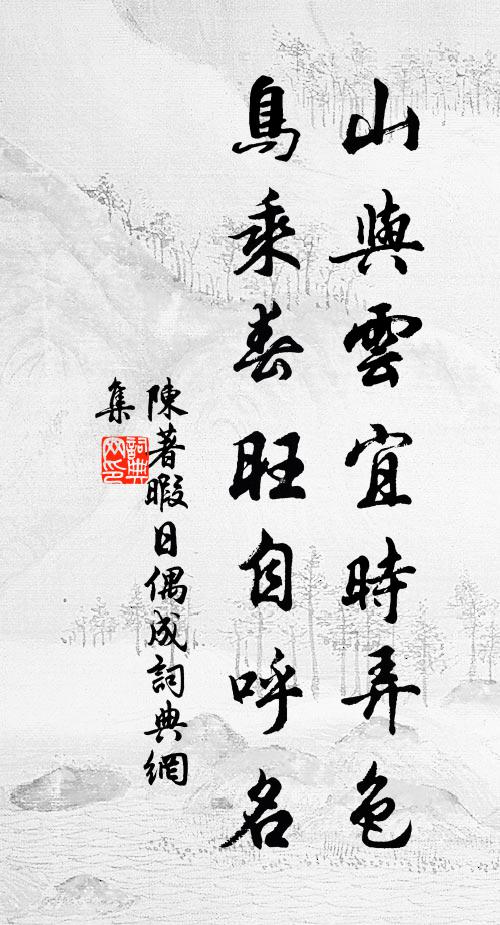 山與雲宜時弄色
鳥乘春旺自呼名
陳著暇日偶成詞典網
集
詞典
网印